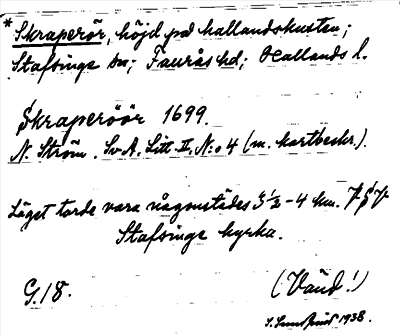 *Skraperör, höjd på Hallandskusten;
Stafsinge sn; Faurås hd; Hallands l.
Skraperöör 1699.
N. Ström. Sv A. Litt. II. N:o 4 (m. kartbeskr.).
Läget torde vara någonstädes 3½-4 km.
Stafsinge kyrka.
G.18.
(Vänd!)
1938.